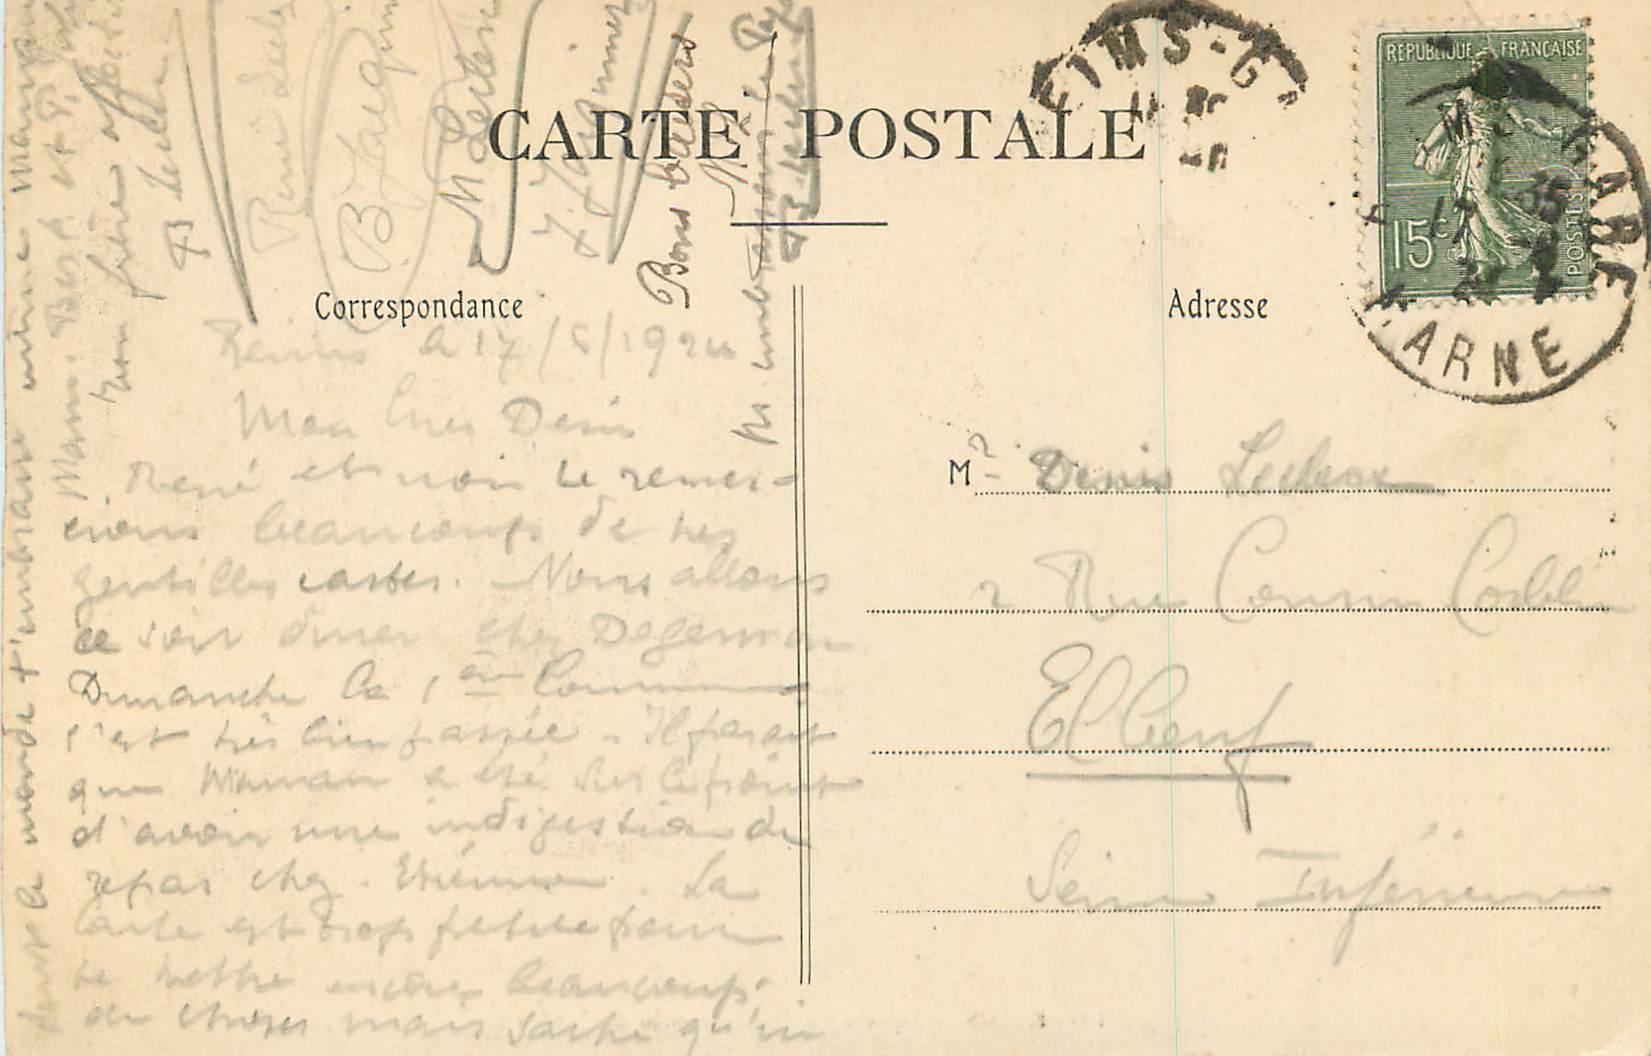 CARTE POSTALE
Correspondance
Adresse
REPUBLIQUE FRANÇAISE
15c
POSTES
REIMS-GARE
MARNE
Reims le 17/6/1924
Mon cher Denis
René et moi te remer-
cions beaucoup de tes
gentilles cartes. Nous allons
ce soir diner chez Degerman
Dimanche la 1ère Communion
s'est très bien passée. Il parait
que Maman a été sur le point
d'avoir une indigestion du
repas chez Etienne. La
carte est trop petite pour
te mettre encore beaucoup
de choses mais sache qu'ici
tout le monde t'embrasse même
Mam. et
Ton frère
Leclerc
René
B Jacquin
M Leclerc
J Jacquin
Bons baisers
M
un
Mr Denis Leclerc
2 Rue Cousin Corblin
Elbeuf
Seine Inférieure